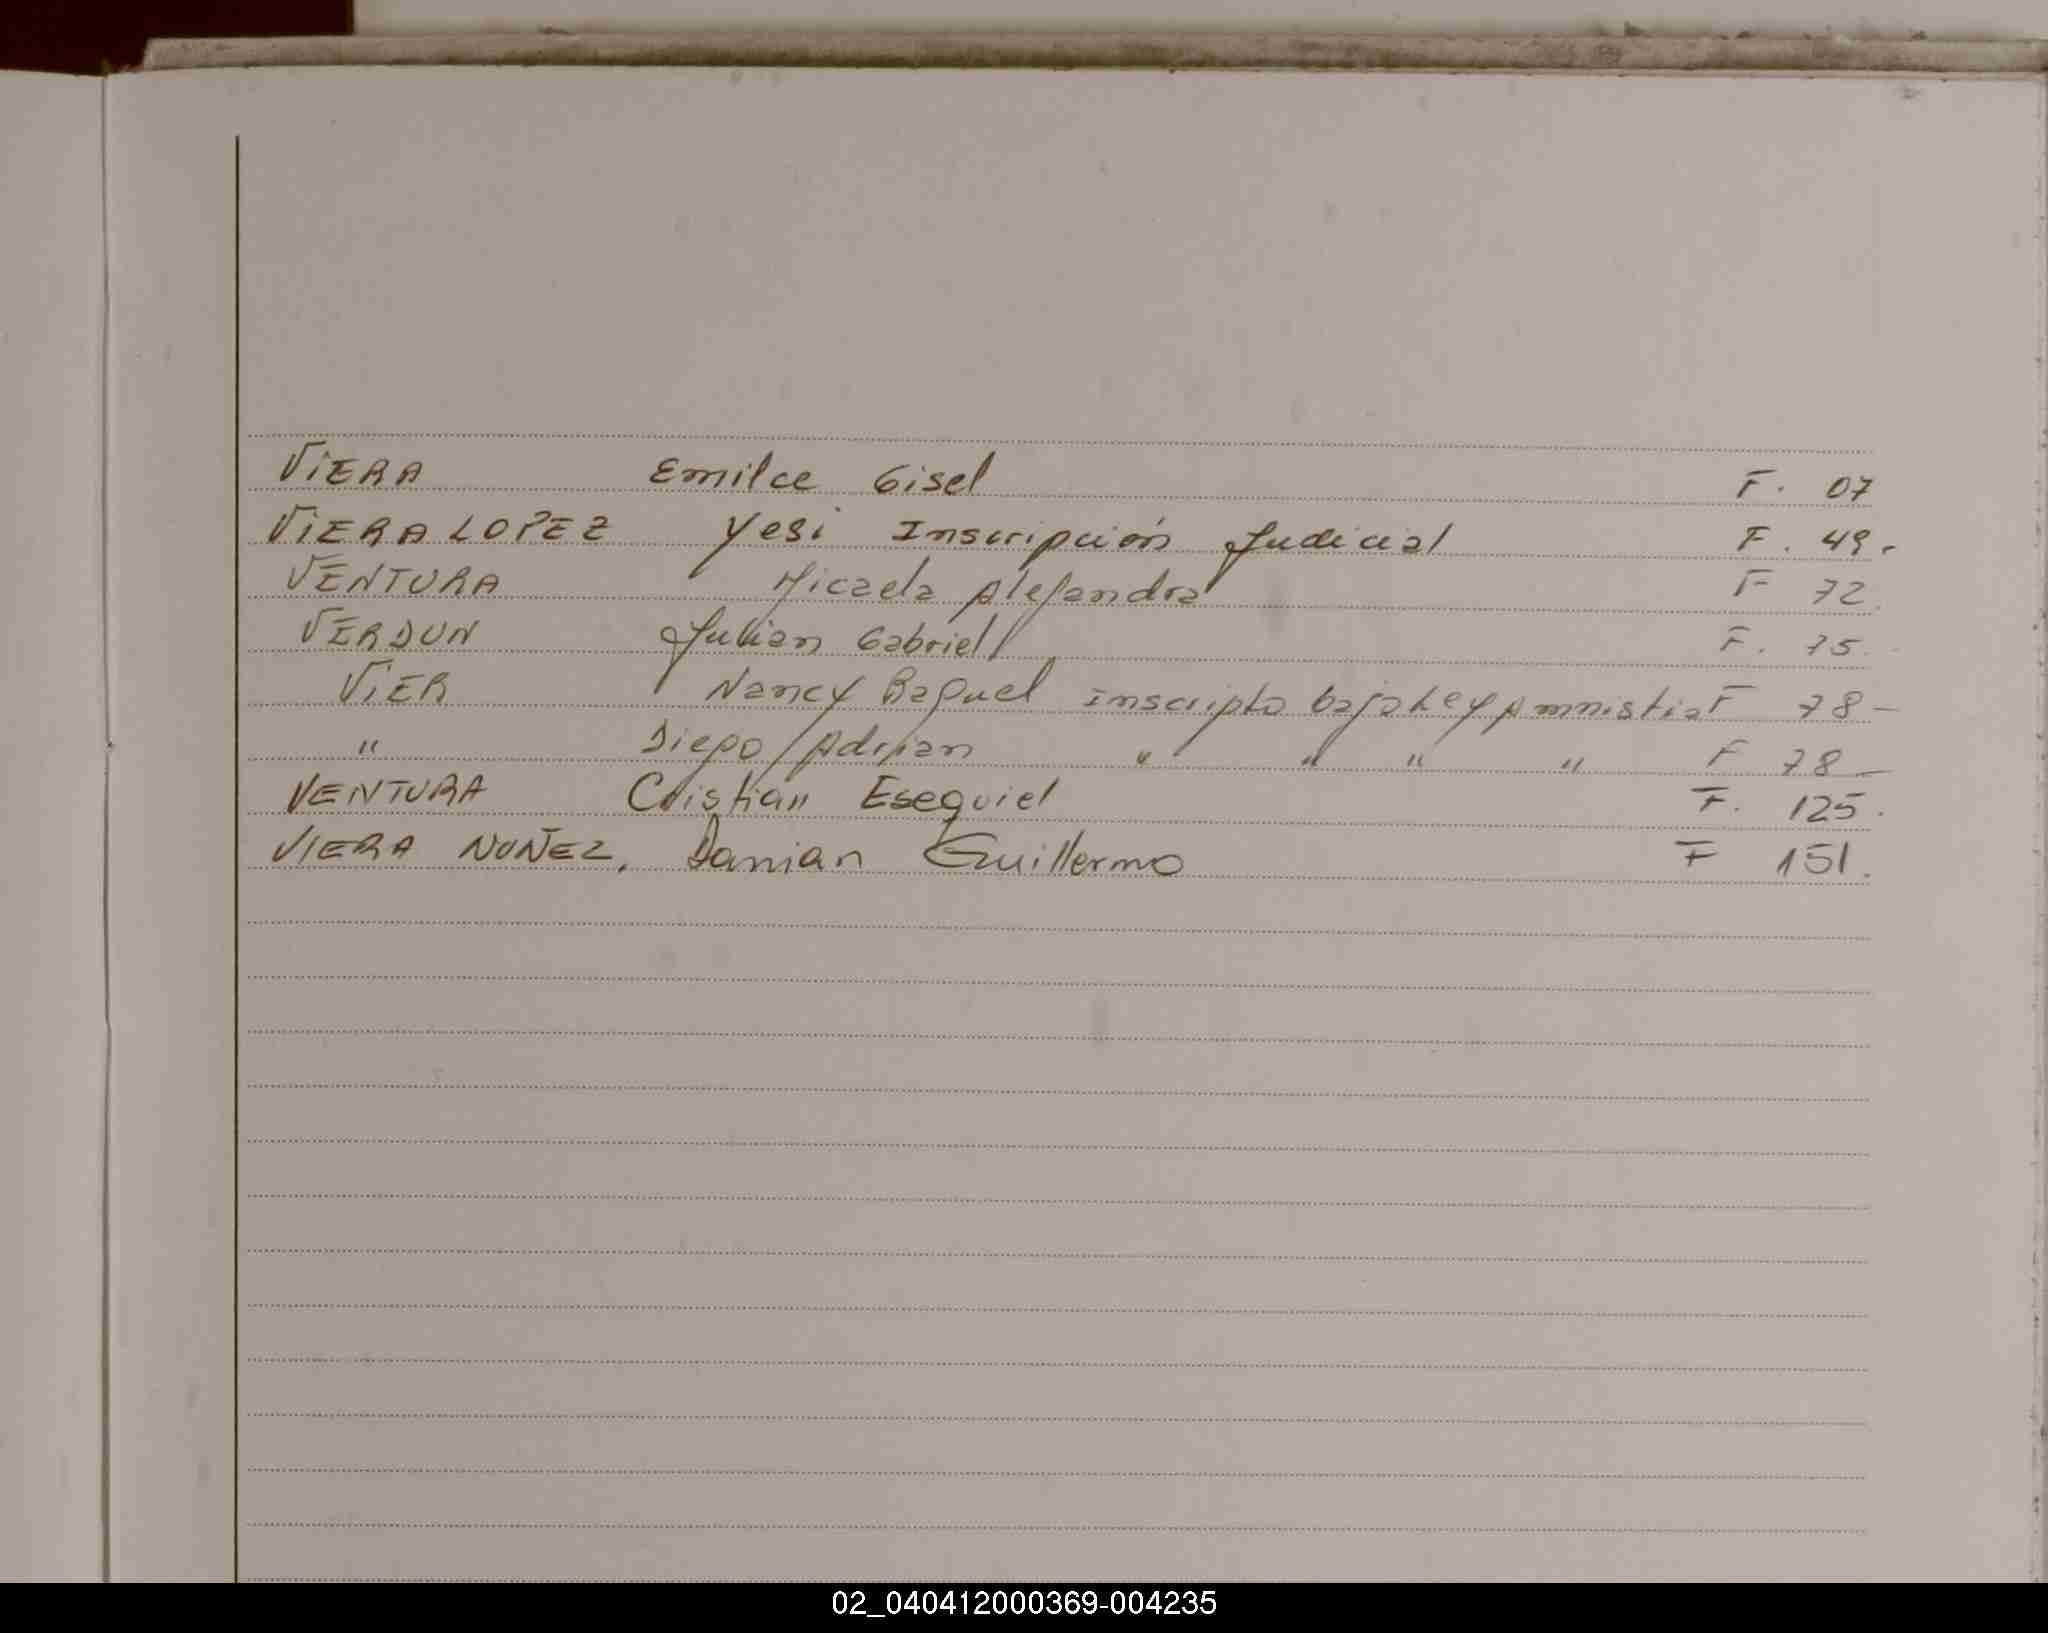 VIERA Emilce Gisel F. 07
VIERA LOPEZ Yesi Inscripción Judicial F. 49.
VENTURA Micaela Alejandra F 72.
VERDUN Julian Gabriel F. 75.
VIER Nancy Raquel inscripta bajo Ley Amnistia F 78-
" Diego Adrian " " " " F 78-
VENTURA Cristian Esequiel F. 125.
VIERA NUÑEZ. Damian Guillermo F 151.
02_040412000369-004235